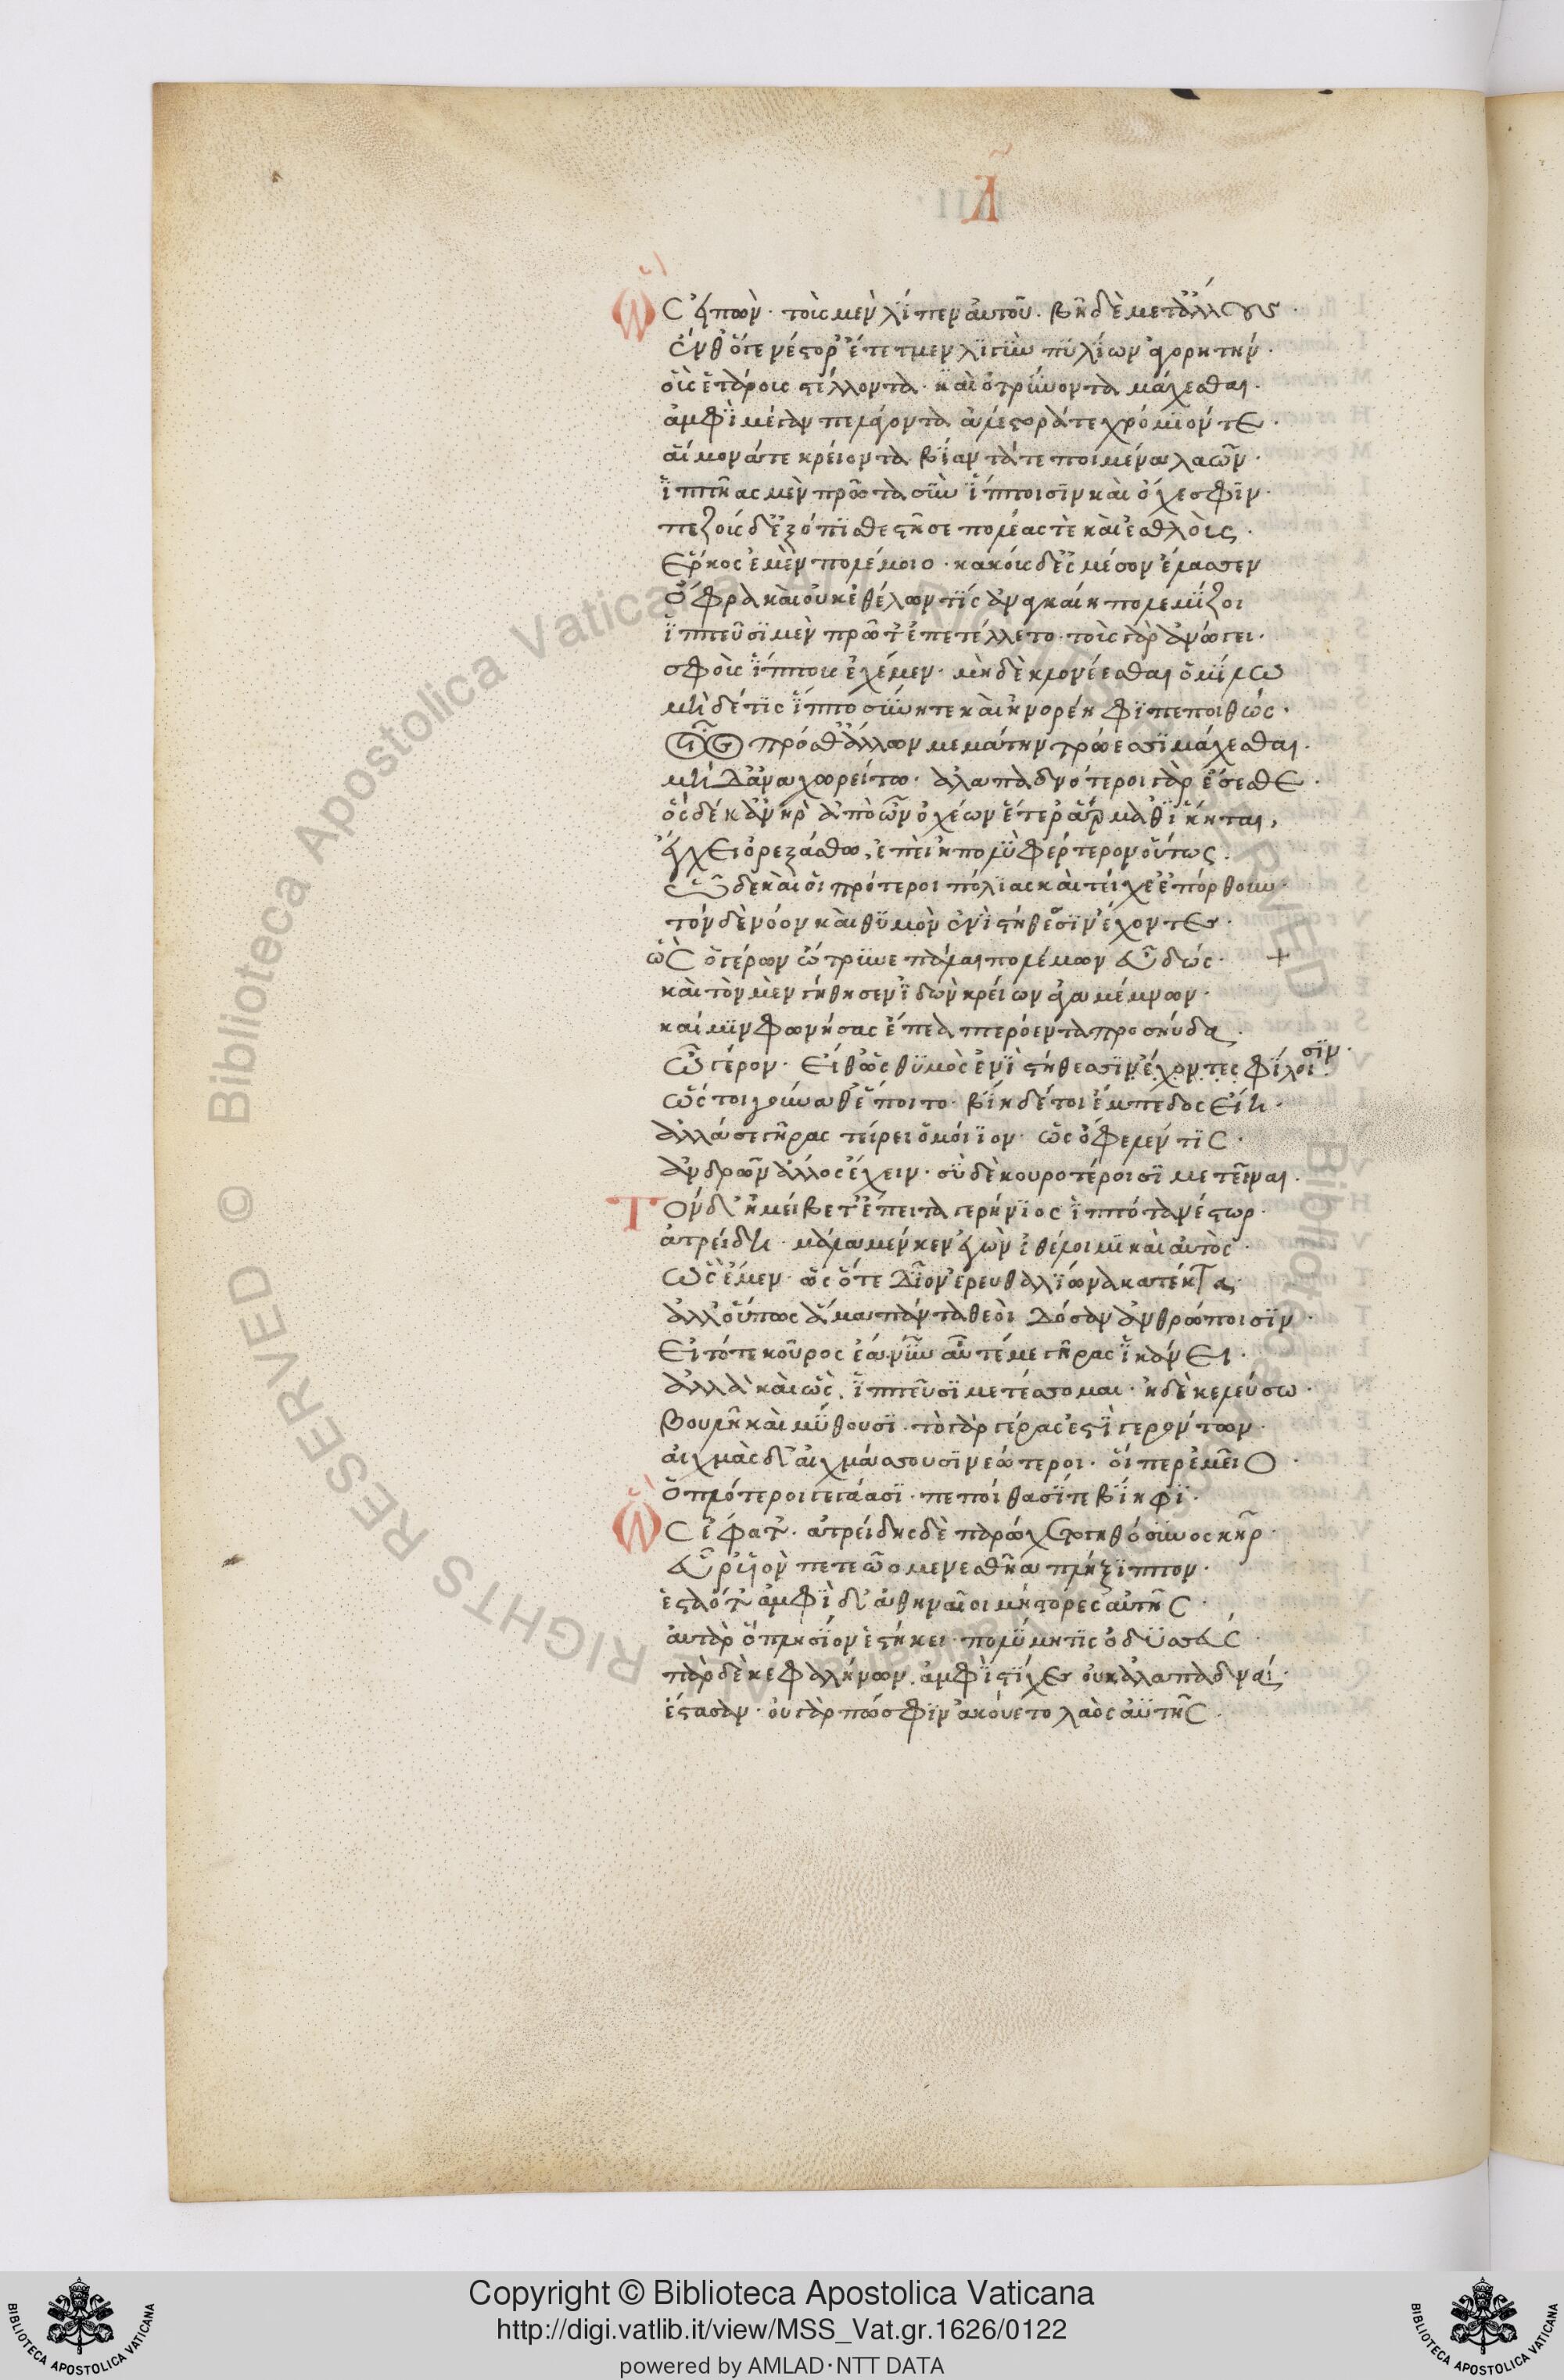 Δ
Ὣς εἰπὼν· τοὺς μὲν λίπεν αὐτοῦ. βῆ δὲ μετ' ἄλλους·
ἔνθ' ὅγε νέστορ' ἔτετμεν λιγὺν πυλίων ἀγορητήν·
οὓς ἑτάρους στέλλοντα· καὶ ὀτρύνοντα μάχεσθαι·
ἀμφὶ μέγαν πελάγοντα ἀλάστορά τε χρόμιόν τε·
αἵμονά τε κρείοντα βίαντά τε ποιμένα λαῶν·
ἱππῆας μὲν πρῶτα σὺν ἵπποισιν καὶ ὄχεσφιν·
πεζοὺς δ' ἐξόπιθε στῆσε πολέας τὲ καὶ ἐσθλοὺς·
ἕρκος ἔμεν πολέμοιο· κακοὺς δ' ἐς μέσον ἔλασσεν
ὄφρα καὶ οὐκ ἐθέλων τὶς ἀναγκαίη πολεμίζοι
ἱππεῦσι μὲν πρῶτ' ἐπετέλλετο· τοὺς γὰρ ἀνώγει·
σφοὺς ἵππους ἐχέμεν· μὴ δὲ κλονέεσθαι ὁμίλω
μὴ δέ τις ἱπποσύνη τε καὶ ἠνορέηφι πεποιθώς·
οἶος πρόσθ' ἄλλων μεμάτην τρώεσσι μάχεσθαι·
μὴ δ' ἀναχωρείτω· ἀλαπαδνότεροι γὰρ ἔσεσθε·
ὃς δέ κ' ἀνὴρ ἀπὸ ὧν ὀχέων ἕτερ' ἅρμαθ' ἵκηται,
ἔγχει ὀρεξάσθω, ἐπειὴ πολὺ φέρτερον οὕτως·
ὧδε καὶ οἱ πρότεροι πόλιας καὶ τείχε' ἐπόρθουν·
τόνδε νόον καὶ θυμὸν ἐνὶ στήθεσσιν ἔχοντες·
ὣς ὁ γέρων ὤτρυνε πάλαι πολέμων εὖ εἰδώς· +
καὶ τὸν μὲν γήθησεν ἰδὼν κρείων ἀγαμέμνων·
καί μιν φωνήσας ἔπεα πτερόεντα προσηύδα·
Ὦ γέρον· εἴθ' ὡς θυμὸς ἐνὶ στήθεσσιν ἔχοντες φίλοισιν·
ὥς τοι γούναθ' ἕποιτο· βίη δέ τοι ἔμπεδος εἴη·
ἀλλά σε γῆρας τείρει ὁμοίιον· ὡς ὄφελέν τις·
ἀνδρῶν ἄλλος ἔχειν· σὺ δὲ κουροτέροισι μετεῖναι·
Τὸν δ' ἠμείβετ' ἔπειτα γερήνιος ἱππότα νέστωρ·
ἀτρείδη· μάλα μέν κεν ἐγὼν ἐθέλοιμι καὶ αὐτὸς·
ὣς ἔμεν· ὡς ὅτε δῖον ἐρευθαλίωνα κατέκτα·
ἀλλ' οὔπως ἅμα πάντα θεοὶ δόσαν ἀνθρώποισιν·
εἰ τότε κοῦρος ἔα νῦν αὖτέ με γῆρας ἱκάνει·
ἀλλὰ καὶ ὣς, ἱππεῦσι μετέσσομαι· ἠδὲ κελεύσω·
βουλῆ καὶ μύθουσι· τὸ γὰρ γέρας ἐστὶ γερόντων·
αἰχμὰς δ' αἰχμάσσουσι νεώτεροι· οἵπερ ἐμεῖο·
ὁπλότεροι γεγάασι· πεποίθασίν τε βίηφι·
Ὣς ἔφατ'· ἀτρείδης δὲ παρώχετο γηθόσυνος κῆρ·
εὗρ' υἱὸν πετεῶο μενεσθῆα πλήξιππον·
ἑσταότ' ἀμφὶ δ' ἀθηναῖοι μήστορες ἀυτῆς·
ἀυτὰρ ὁ πλησίον ἑστήκει· πολύμητις ὀδυσσεύς·
πὰρ δὲ κεφαλλήνων· ἀμφὶ στίχες οὐκ ἀλαπαδναί·
ἕστασαν· οὐ γάρ πώ σφιν ἀκούετο λαὸς ἀϋτῆς·
Copyright © Biblioteca Apostolica Vaticana
http://digi.vatlib.it/view/MSS_Vat.gr.1626/0122
powered by AMLAD·NTT DATA
BIBLIOTECA APOSTOLICA VATICANA
BIBLIOTECA APOSTOLICA VATICANA